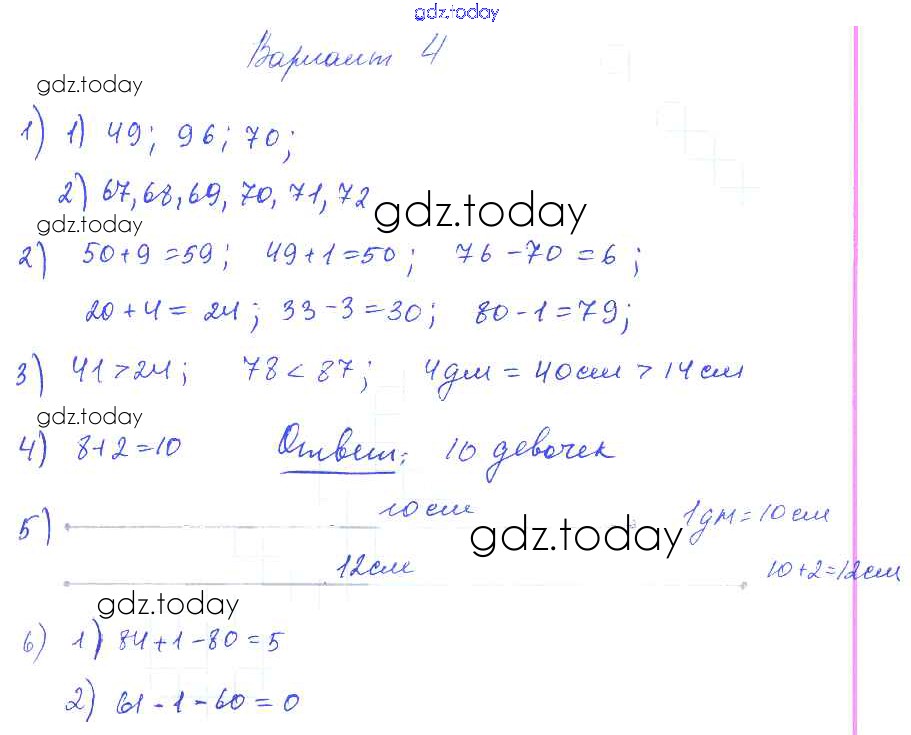 gdz.today
Вариант 4
gdz.today
1) 1) 49; 96; 70;
2) 67, 68, 69, 70, 71, 72
gdz.today
gdz.today
2) 50+9=59; 49+1=50; 76-70=6;
20+4=24; 33-3=30; 80-1=79;
3) 41>24; 78<87; 4дм=40см>14см
gdz.today
4) 8+2=10 Ответ: 10 девочек
5) 10см 1дм=10см
gdz.today
12см 10+2=12см
gdz.today
6) 1) 84+1-80=5
2) 61-1-60=0